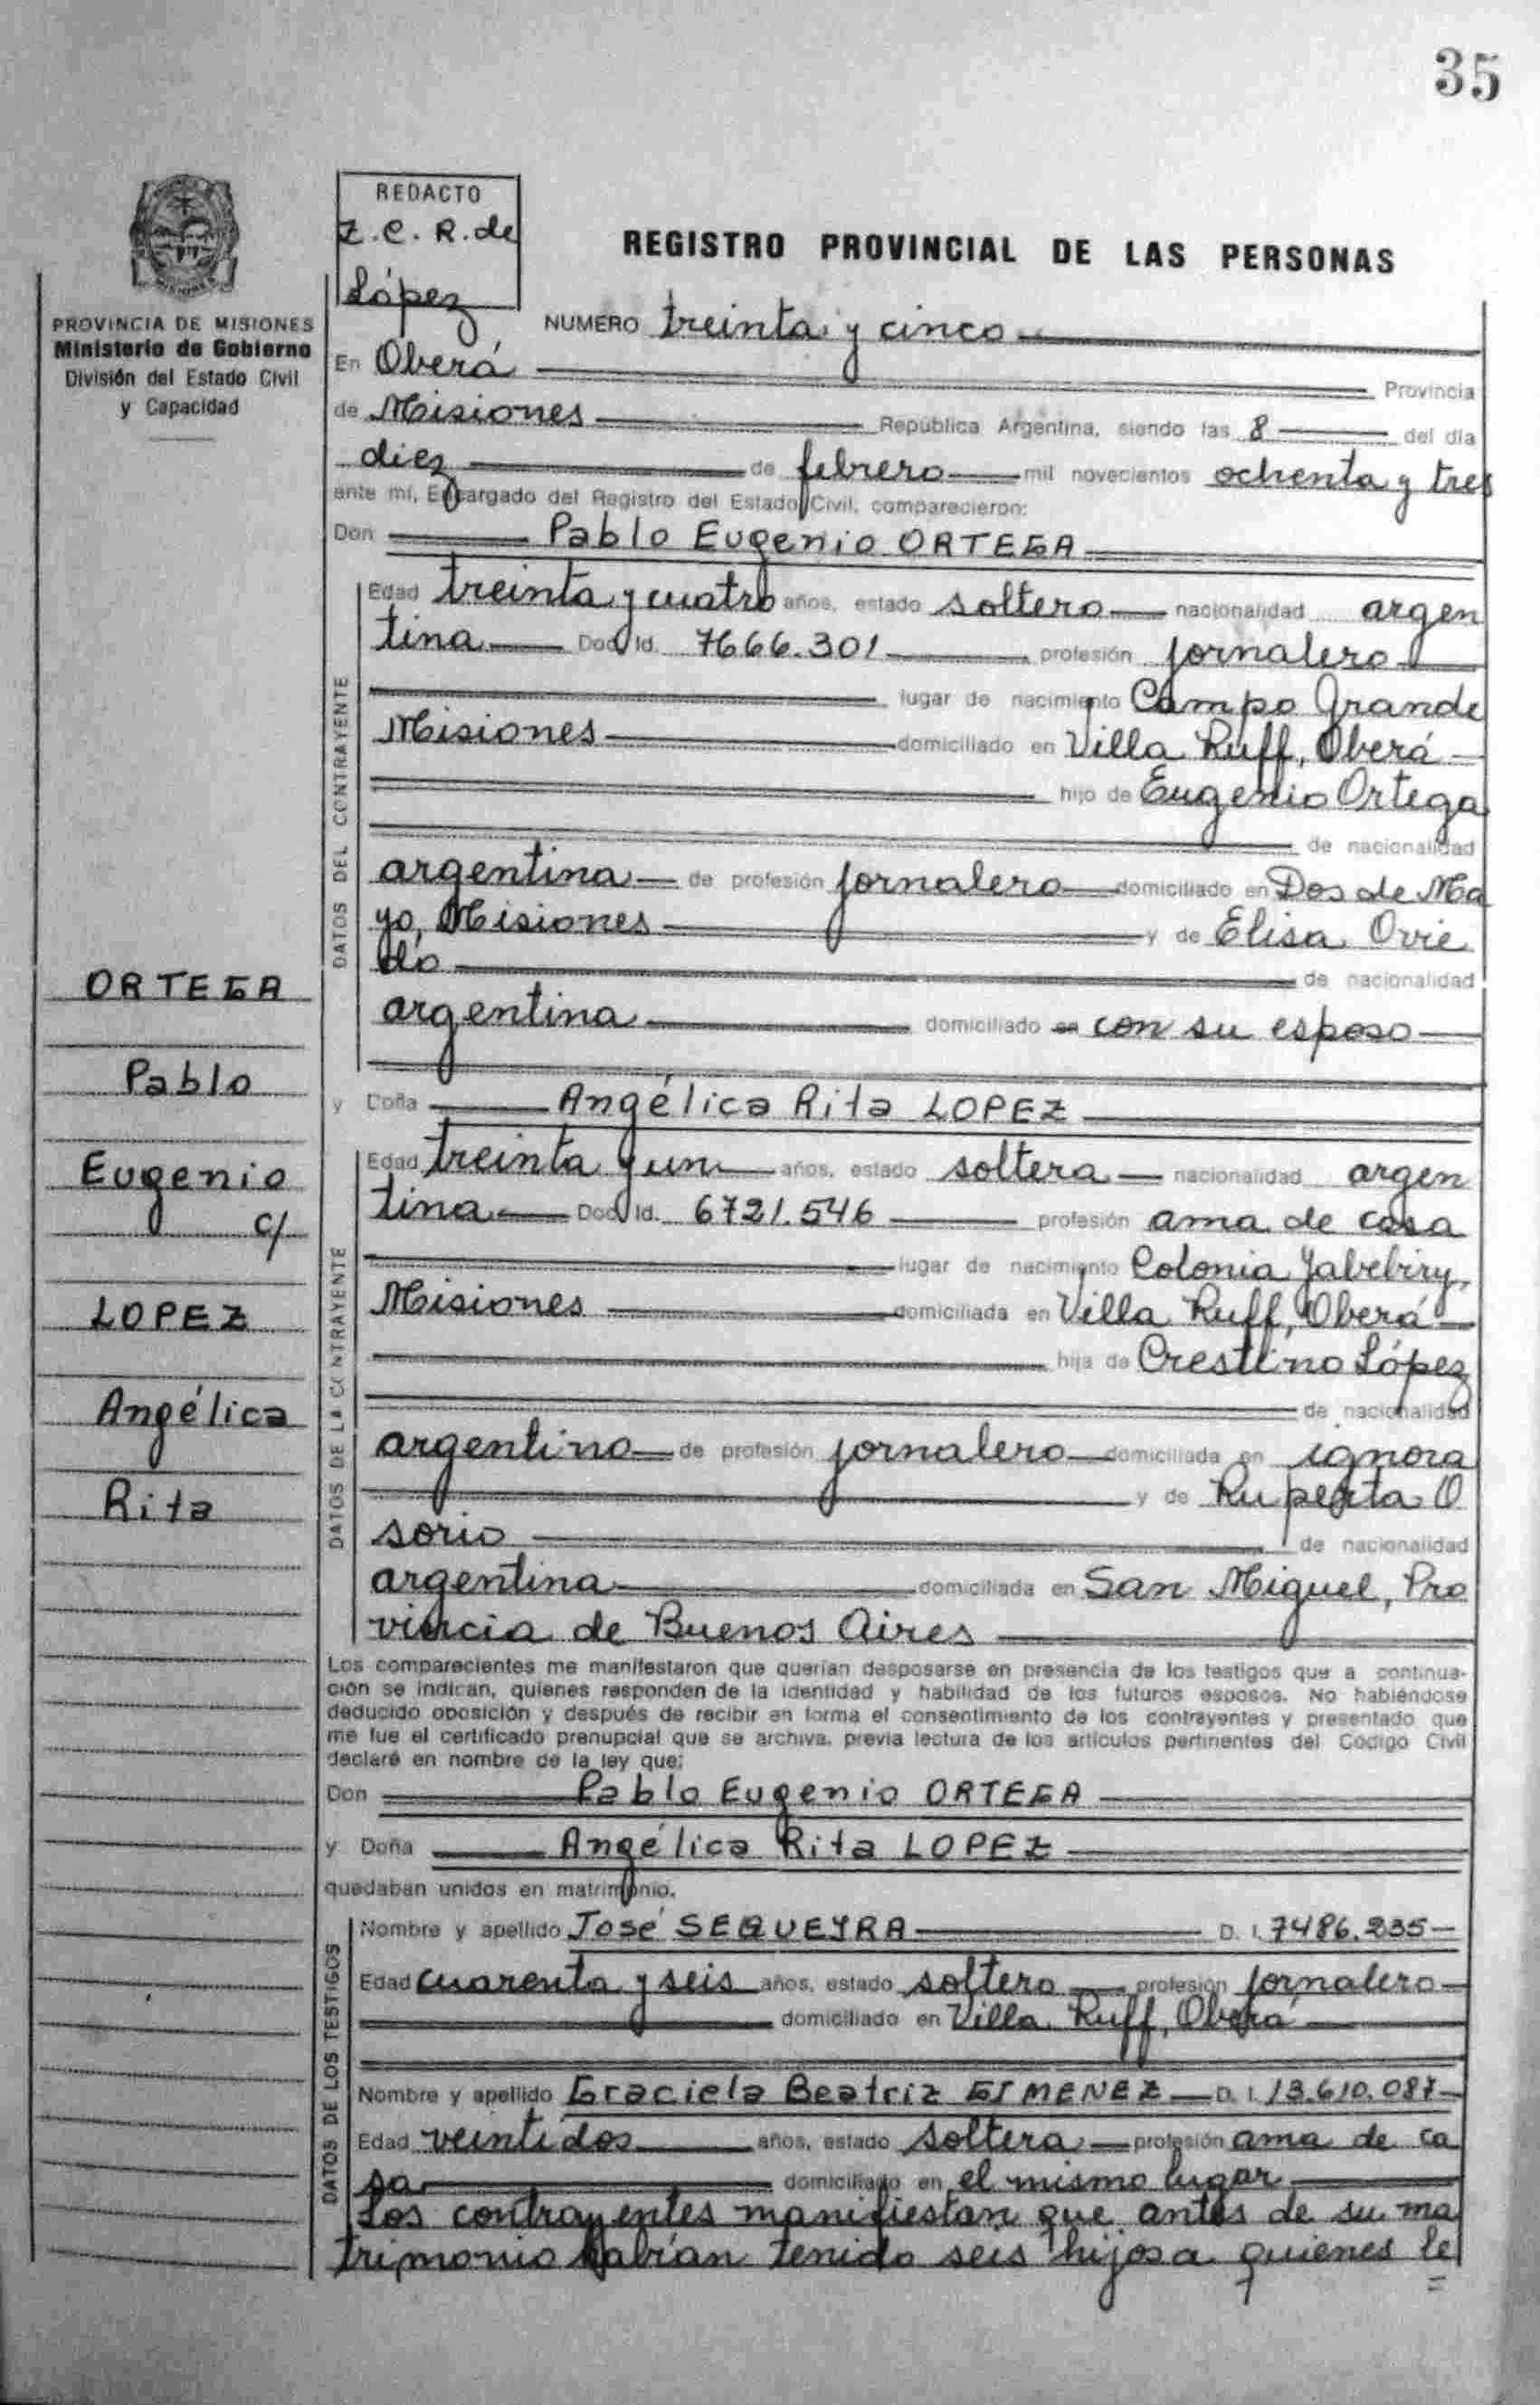 35
REDACTO
Z.C.R. de
López
REGISTRO PROVINCIAL DE LAS PERSONAS
PROVINCIA DE MISIONES
Ministerio de Gobierno
División del Estado Civil
y Capacidad
NUMERO treinta y cinco
En Oberá Provincia
de Misiones República Argentina, siendo las 8 del día
diez de febrero mil novecientos ochenta y tres
ante mí, Encargado del Registro del Estado Civil, comparecieron:
Don Pablo Eugenio ORTEGA
DATOS DEL CONTRAYENTE
Edad treinta y cuatro años, estado soltero nacionalidad argen
tina Doc. Id. 7666.301 profesión jornalero
lugar de nacimiento Campo Grande
Misiones domiciliado en Villa Ruff, Oberá
hijo de Eugenio Ortega
de nacionalidad
argentina de profesión jornalero domiciliado en Dos de Ma
yo, Misiones y de Elisa Ovie
do de nacionalidad
argentina domiciliado en con su esposo
y Doña Angélica Rita LOPEZ
DATOS DE LA CONTRAYENTE
Edad treinta y un años, estado soltera nacionalidad argen
tina Doc. Id. 6721.546 profesión ama de casa
lugar de nacimiento Colonia Yabebiry,
Misiones domiciliada en Villa Ruff, Oberá
hija de Crestino López
de nacionalidad
argentino de profesión jornalero domiciliada en ignora
y de Ruperta O
sorio de nacionalidad
argentina domiciliada en San Miguel, Pro
vincia de Buenos Aires
ORTEGA
Pablo
Eugenio
c/
LOPEZ
Angélica
Rita
Los comparecientes me manifestaron que querían desposarse en presencia de los testigos que a continua-
ción se indican, quienes responden de la identidad y habilidad de los futuros esposos. No habiéndose
deducido oposición y después de recibir en forma el consentimiento de los contrayentes y presentado que
me fue el certificado prenupcial que se archiva, previa lectura de los artículos pertinentes del Código Civil
declaré en nombre de la ley que:
Don Pablo Eugenio ORTEGA
y Doña Angélica Rita LOPEZ
quedaban unidos en matrimonio.
DATOS DE LOS TESTIGOS
Nombre y apellido José SEQUEYRA D. I. 7486.235
Edad cuarenta y seis años, estado soltero profesión jornalero
domiciliado en Villa Ruff, Oberá
Nombre y apellido Graciela Beatriz GIMENEZ D. I. 13.610.087
Edad veintidos años, estado soltera profesión ama de ca
sa domiciliado en el mismo lugar
Los contrayentes manifiestan que antes de su ma
trimonio habían tenido seis hijos a quienes le
=